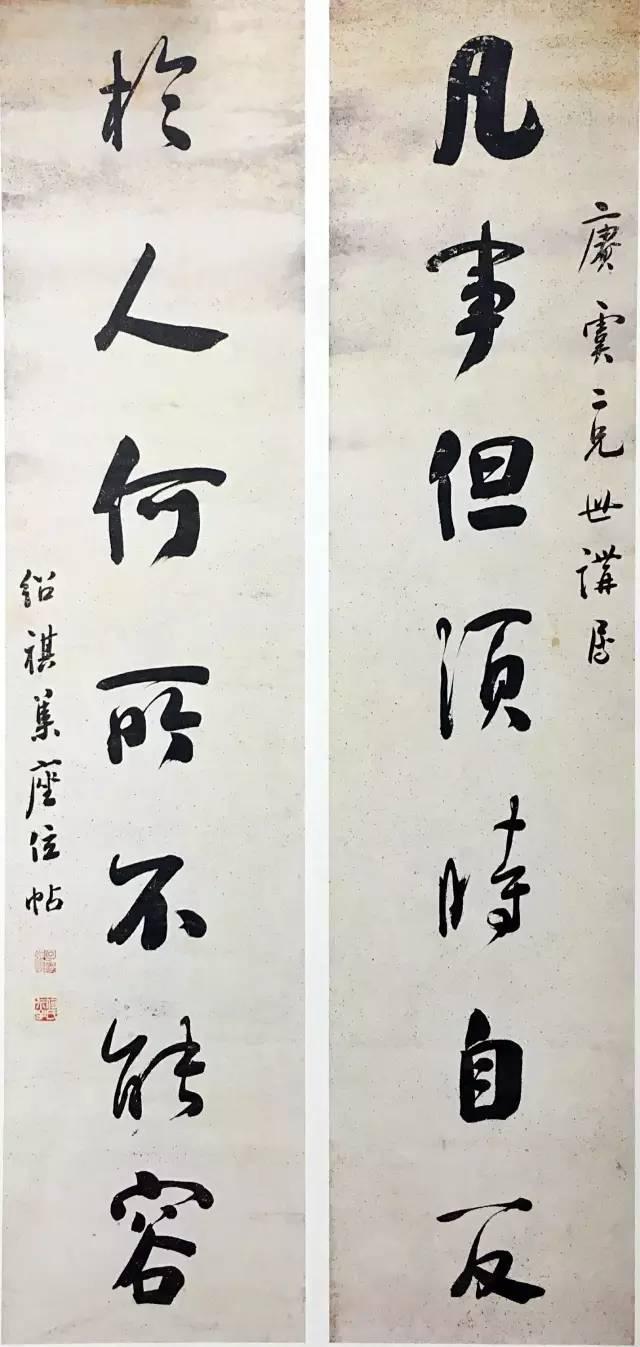 賡虞二兄世講屬
凡事但須時自反
於人何所不能容
紹祺集座位帖